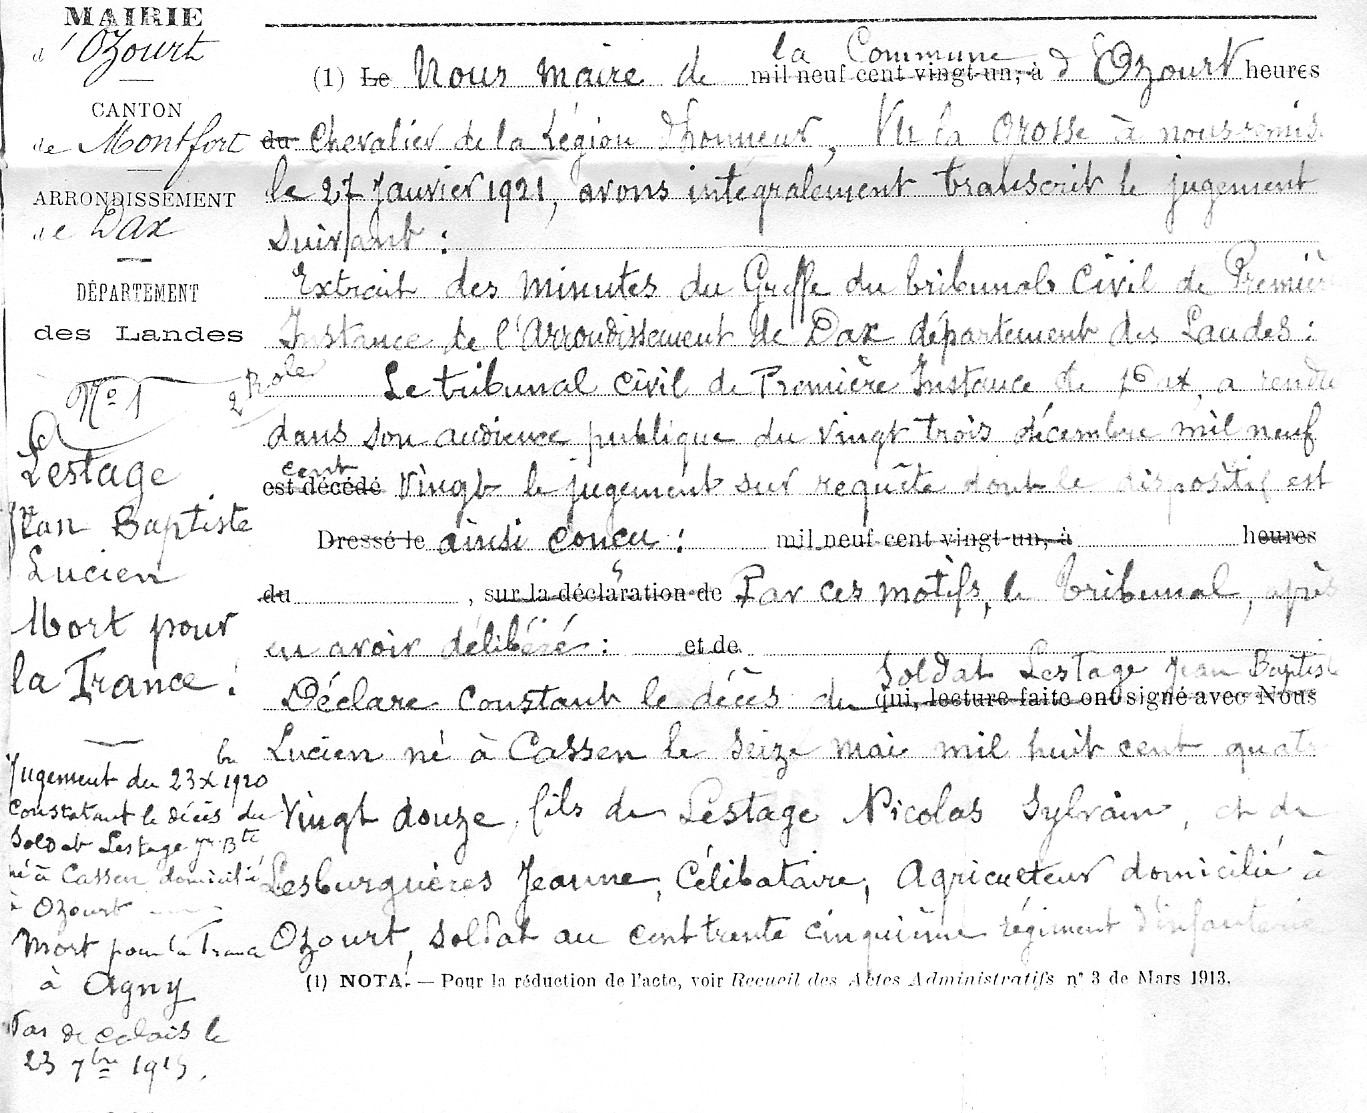 MAIRIE
d'Ozourt
CANTON
de Montfort
ARRONDISSEMENT
de Dax
DÉPARTEMENT
des Landes
Nº 1
2 Role
Lestage
Jean Baptiste
Lucien
Mort pour
la France !
Jugement du 23 Xbre 1920
constatant le décès du
Soldat Lestage Jn Bte
né à Cassen domicilié
à Ozourt
Mort pour la France
à Agny
Pas de Calais le
23 7bre 1915.
la Commune
(1) Le Nous maire de mil neuf cent vingt-un, à d'Ozourt heures
du Chevalier de la Légion d'honneur, Vu la Grosse à nous remis
le 27 Janvier 1921, avons intégralement transcrit le jugement
suivant :
Extrait des minutes du Greffe du tribunal Civil de Première
Instance de l'Arrondissement de Dax département des Landes :
Le tribunal civil de Première Instance de Dax, a rendu
dans son audience publique du vingt trois décembre mil neuf
cent
est décédé vingt le jugement sur requête dont le dispositif est
Dressé le ainsi conçu : mil neuf cent vingt-un, à heures
du , sur la déclaration de Par ces motifs, le tribunal, après
en avoir délibéré : et de
soldat Lestage Jean Baptiste
Déclare constant le décès du qui, lecture faite ont signé avec Nous
Lucien né à Cassen le seize mai mil huit cent quatre
vingt douze, fils de Lestage Nicolas Sylvain, et de
Lesburguères Jeanne, Célibataire, Agriculteur domicilié à
Ozourt, soldat au cent trente cinquième régiment d'infanterie
(1) NOTA. — Pour la réduction de l'acte, voir Recueil des Actes Administratifs nº 3 de Mars 1913.